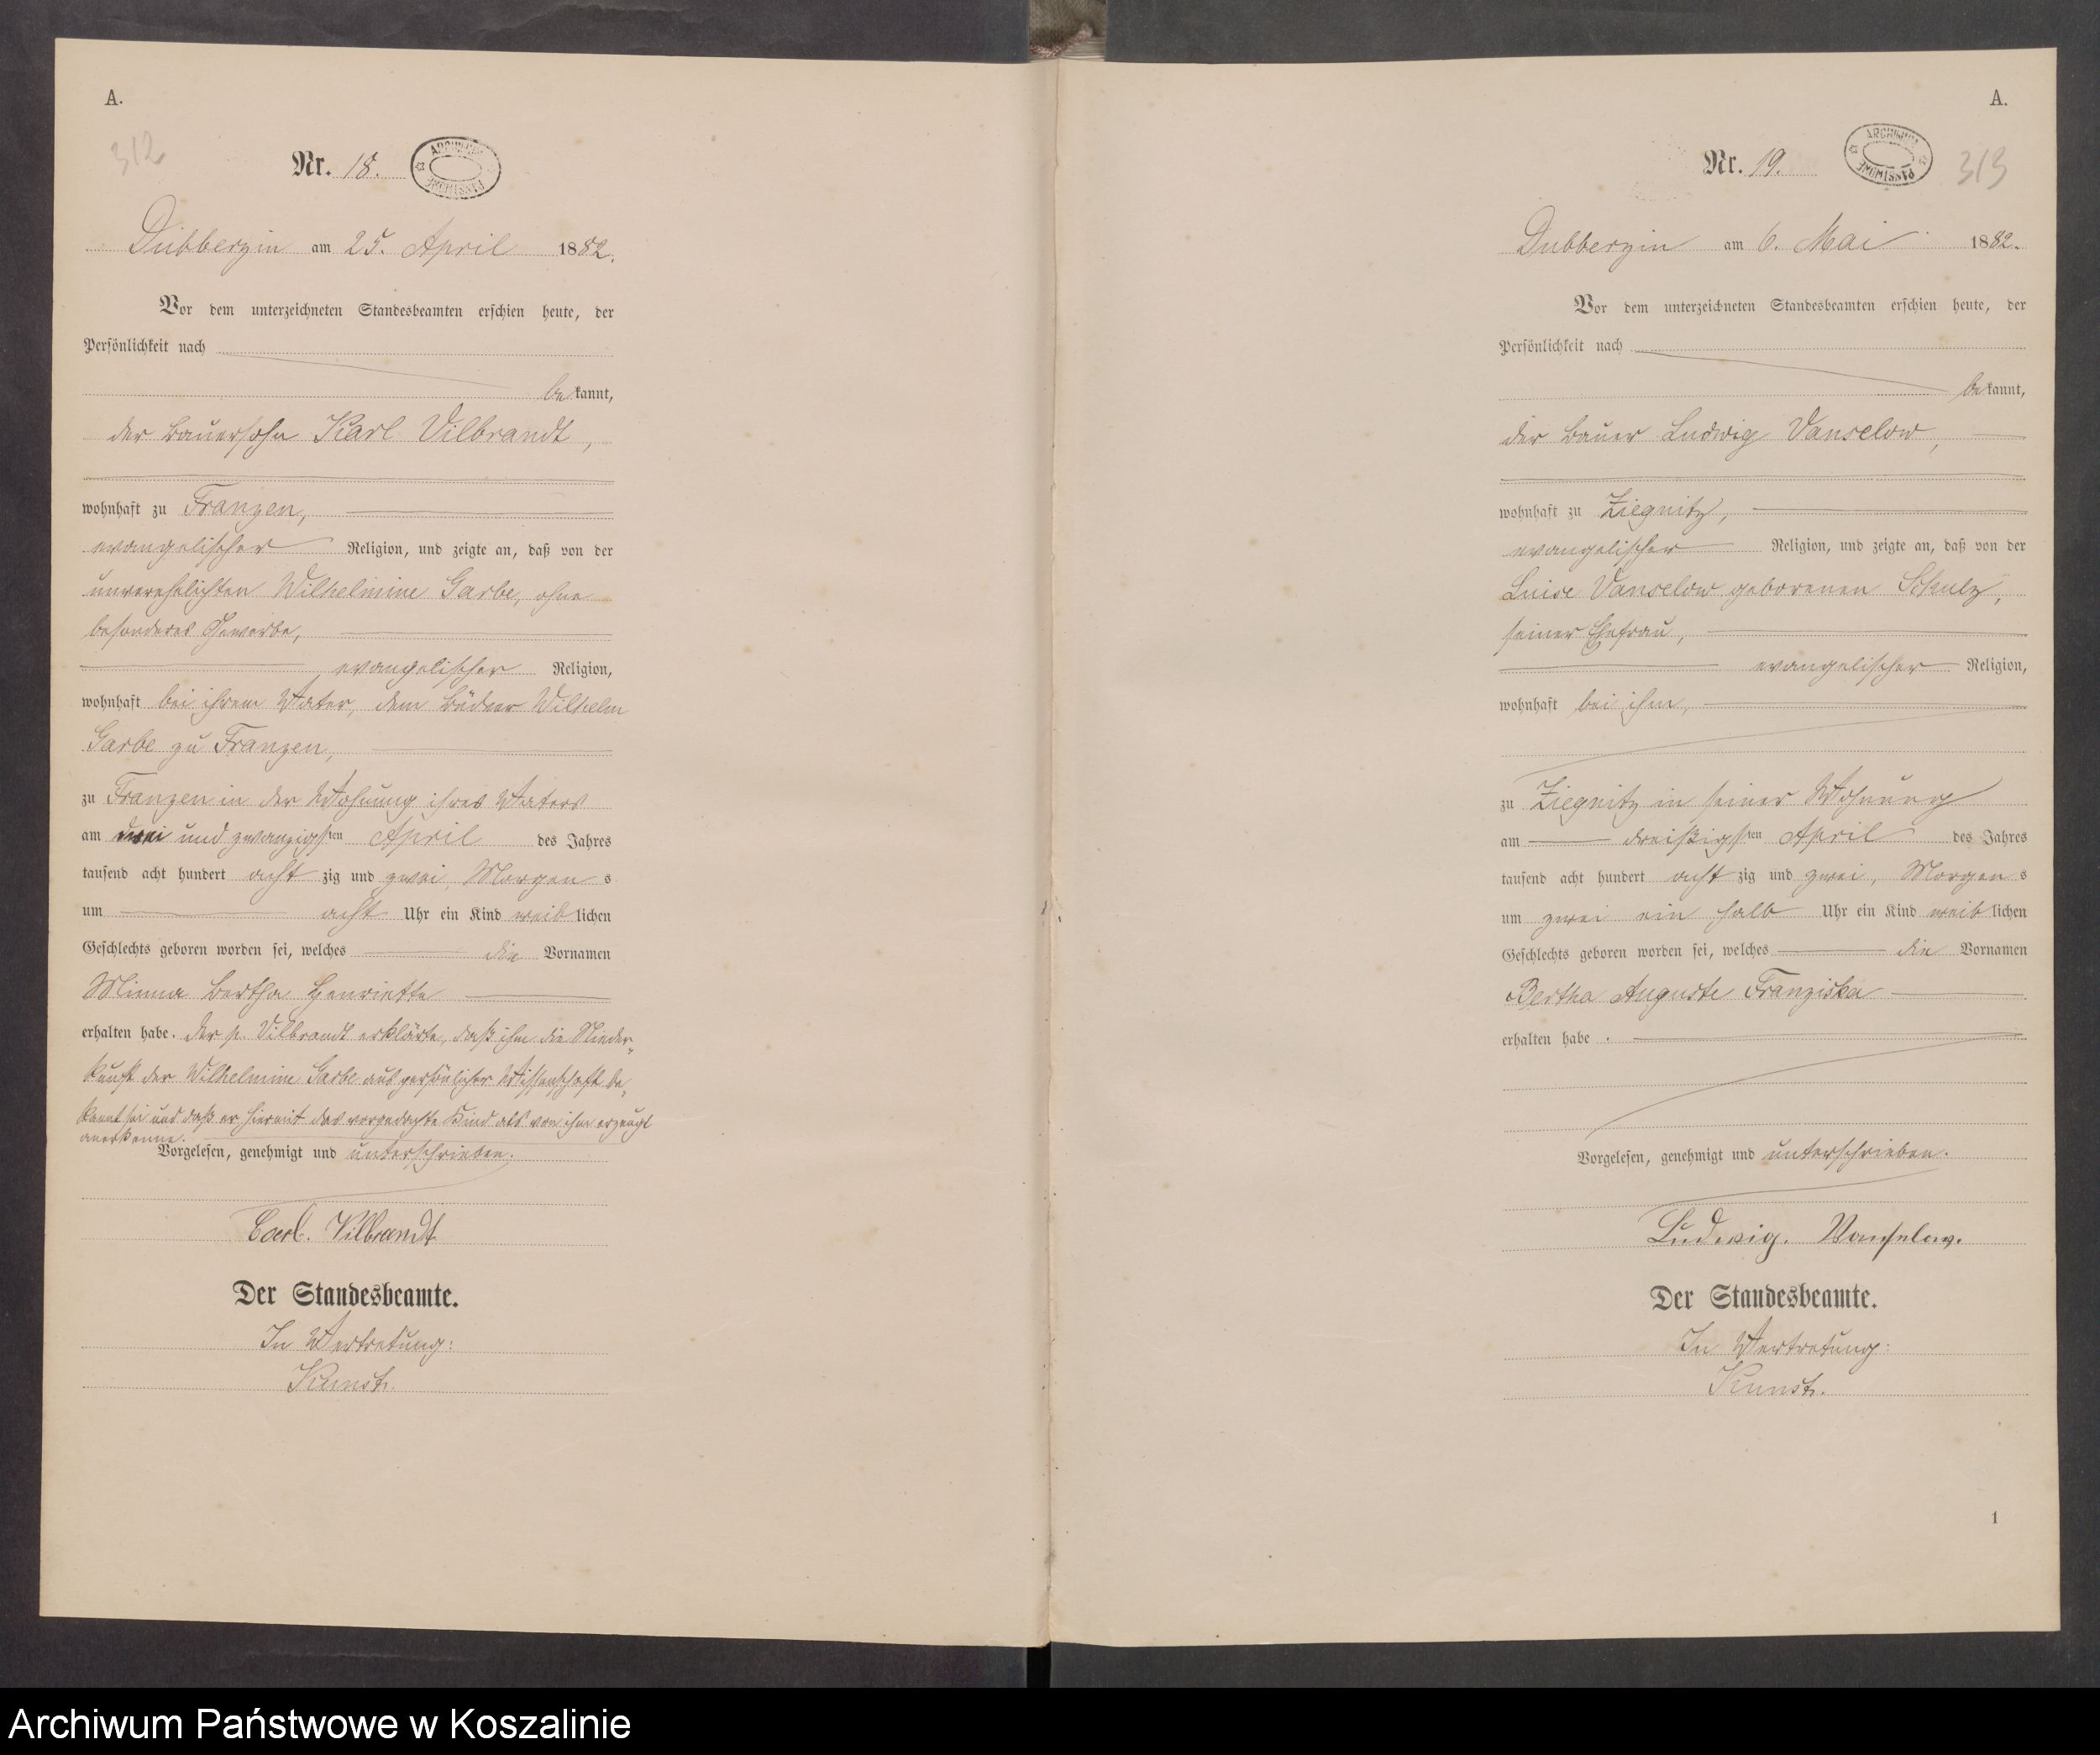 A.
312
Nr. 18.
ARCHIWUM PAŃSTWOWE
Dübberzin am 25. April 1882.
Vor dem unterzeichneten Standesbeamten erschien heute, der
Persönlichkeit nach
bekannt,
der Bauersohn Karl Vilbrandt,
wohnhaft zu Franzen,
evangelischer Religion, und zeigte an, daß von der
unverehelichten Wilhelmine Garbe, ohne
besonderes Gewerbe,
evangelischer Religion,
wohnhaft bei ihrem Vater, dem Büdner Wilhelm
Garbe zu Franzen,
zu Franzen in der Wohnung ihres Vaters
am drei und zwanzigsten April des Jahres
tausend acht hundert acht zig und zwei, Morgens
um acht Uhr ein Kind weiblichen
Geschlechts geboren worden sei, welches die Vornamen
Minna Bertha Henriette
erhalten habe. Der p. Vilbrandt erklärte, daß ihm die Nieder„
kunft der Wilhelmine Garbe aus persönlicher Wissenschaft be„
kannt sei und daß er hiermit das vorgedachte Kind als von ihm erzeugt
anerkenne.
Vorgelesen, genehmigt und unterschrieben.
Carl. Vilbrandt
Der Standesbeamte.
In Vertretung:
Kunst.
A.
Nr. 19.
ARCHIWUM PAŃSTWOWE
313
Dubberzin am 6. Mai 1882.
Vor dem unterzeichneten Standesbeamten erschien heute, der
Persönlichkeit nach
bekannt,
der Bauer Ludwig Vanselow,
wohnhaft zu Ziegnitz,
evangelischer Religion, und zeigte an, daß von der
Luise Vanselow geborenen Schulz,
seiner Ehefrau,
evangelischer Religion,
wohnhaft bei ihm,
zu Ziegnitz in seiner Wohnung
am dreißigsten April des Jahres
tausend acht hundert acht zig und zwei, Morgens
um zwei ein halb Uhr ein Kind weiblichen
Geschlechts geboren worden sei, welches die Vornamen
Bertha Auguste Franziska
erhalten habe .
Vorgelesen, genehmigt und unterschrieben.
Ludwig. Vanselow.
Der Standesbeamte.
In Vertretung:
Kunst.
1
Archiwum Państwowe w Koszalinie